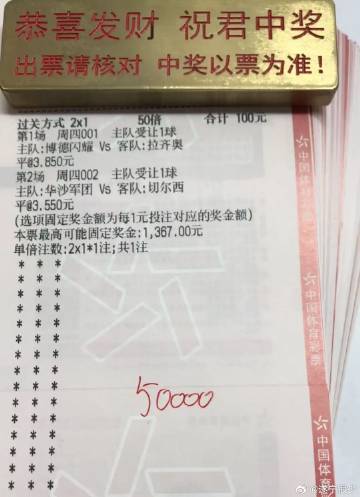 恭喜发财 祝君中奖
出票请核对 中奖以票为准!
过关方式 2x1 50倍 合计 100元
第1场 周四001 主队受让1球
主队:博德闪耀 Vs 客队:拉齐奥
平@3.850元
第2场 周四002 主队受让1球
主队:华沙军团 Vs 客队:切尔西
平@3.550元
(选项固定奖金额为每1元投注对应的奖金额)
本票最高可能固定奖金:1,367.00元
单倍注数:2x1*1注;共1注
* * *
* * *
* * *
* * *
* * *
* * *
* * *
* * *
* * *
* * *
* * *
* * *
* * *
50000
中国体育彩票
中国体育彩票
中国体育